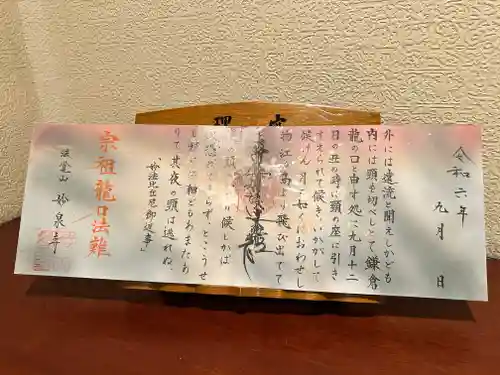 令和六年
九月 日
外には遠流と聞えしかども
内には頸を切べしとて鎌倉
龍の口と申す処に九月十二
日の丑の時に頸の座に引き
すえられて候き、いかがして
候けん月の如くにおわせし
物江の島より飛び出でて
候しかば
らず、とこうせ
し程に子細どもあまたあ
りて其夜の頸は逃れぬ、
「妙法比丘尼御返事」
宗祖龍口法難
妙泉寺